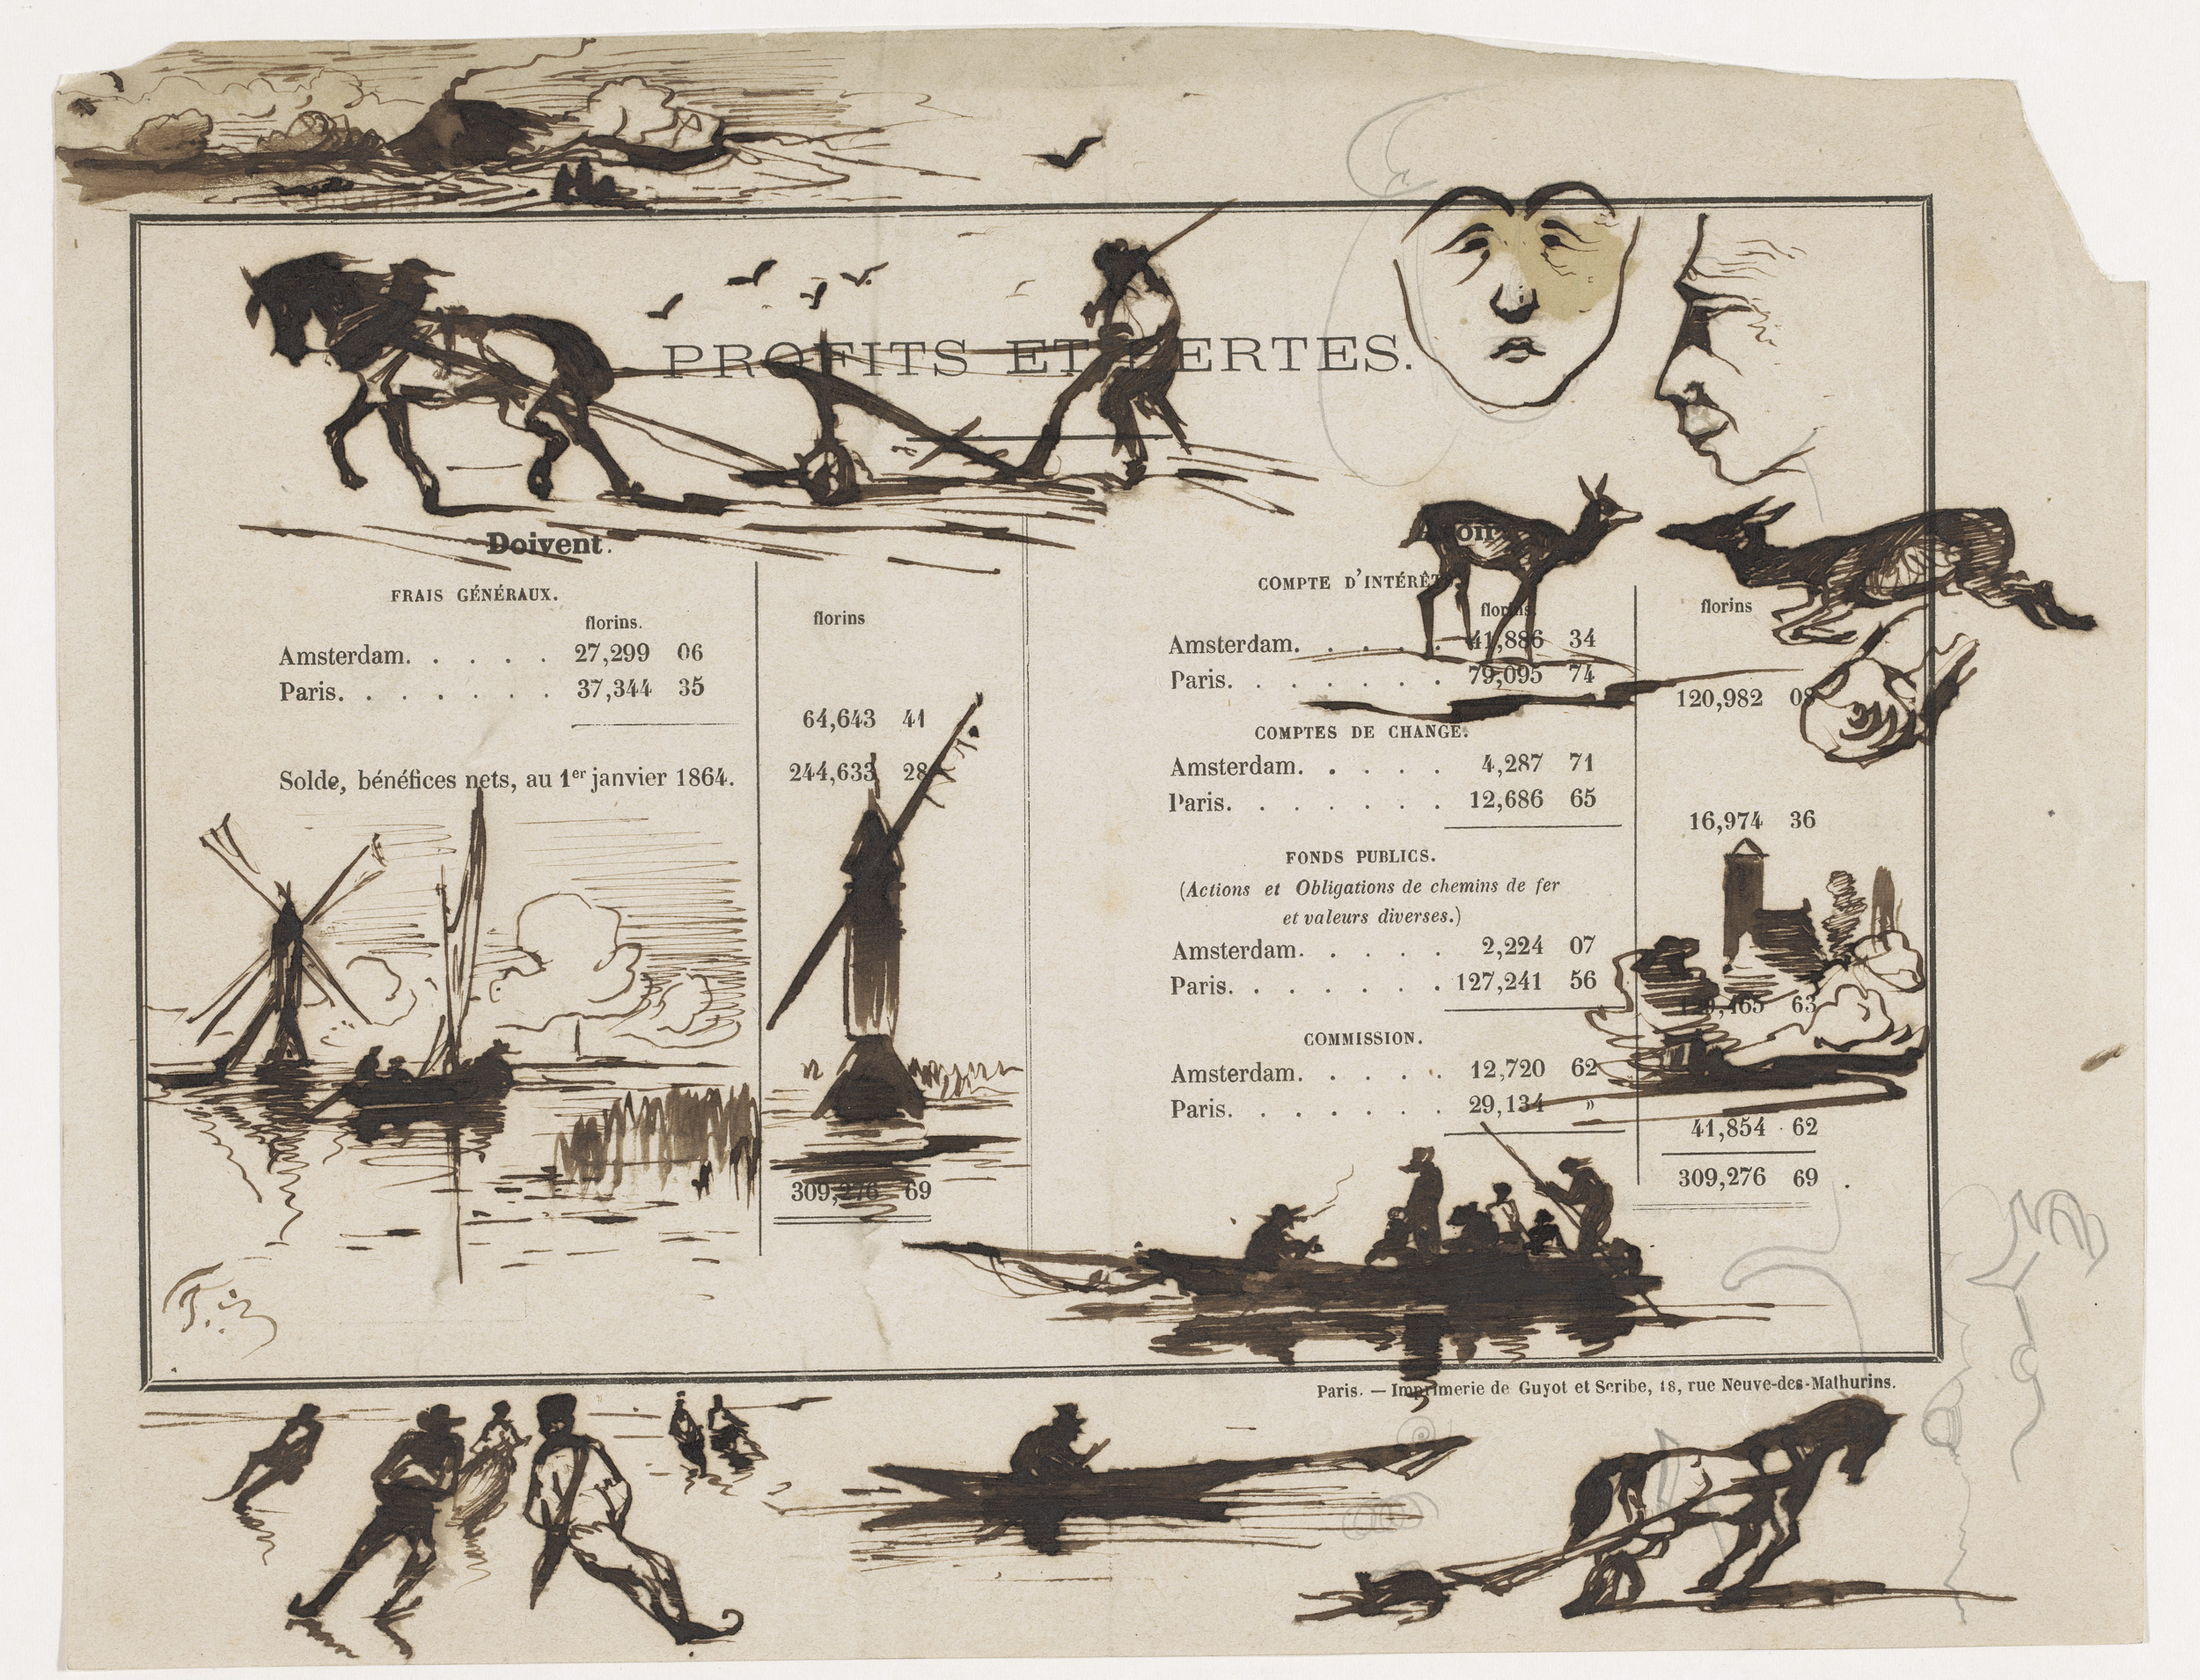 PROFITS ET PERTES.
Doivent.
FRAIS GÉNÉRAUX.
florins. florins
Amsterdam. . . . . 27,299 06
Paris. . . . . . . 37,344 35
64,643 41
Solde, bénéfices nets, au 1er janvier 1864. 244,633 28
309,276 69
COMPTE D'INTÉRÊT
florins florins
Amsterdam. . . . . 41,886 34
Paris. . . . . . . 79,095 74
120,982 08
COMPTES DE CHANGE.
Amsterdam. . . . . 4,287 71
Paris. . . . . . . 12,686 65
16,974 36
FONDS PUBLICS.
(Actions et Obligations de chemins de fer
et valeurs diverses.)
Amsterdam. . . . . 2,224 07
Paris. . . . . . . 127,241 56
129,465 63
COMMISSION.
Amsterdam. . . . . 12,720 62
Paris. . . . . . . 29,134 »
41,854 62
309,276 69
Paris. — Imprimerie de Guyot et Scribe, 18, rue Neuve-des-Mathurins.